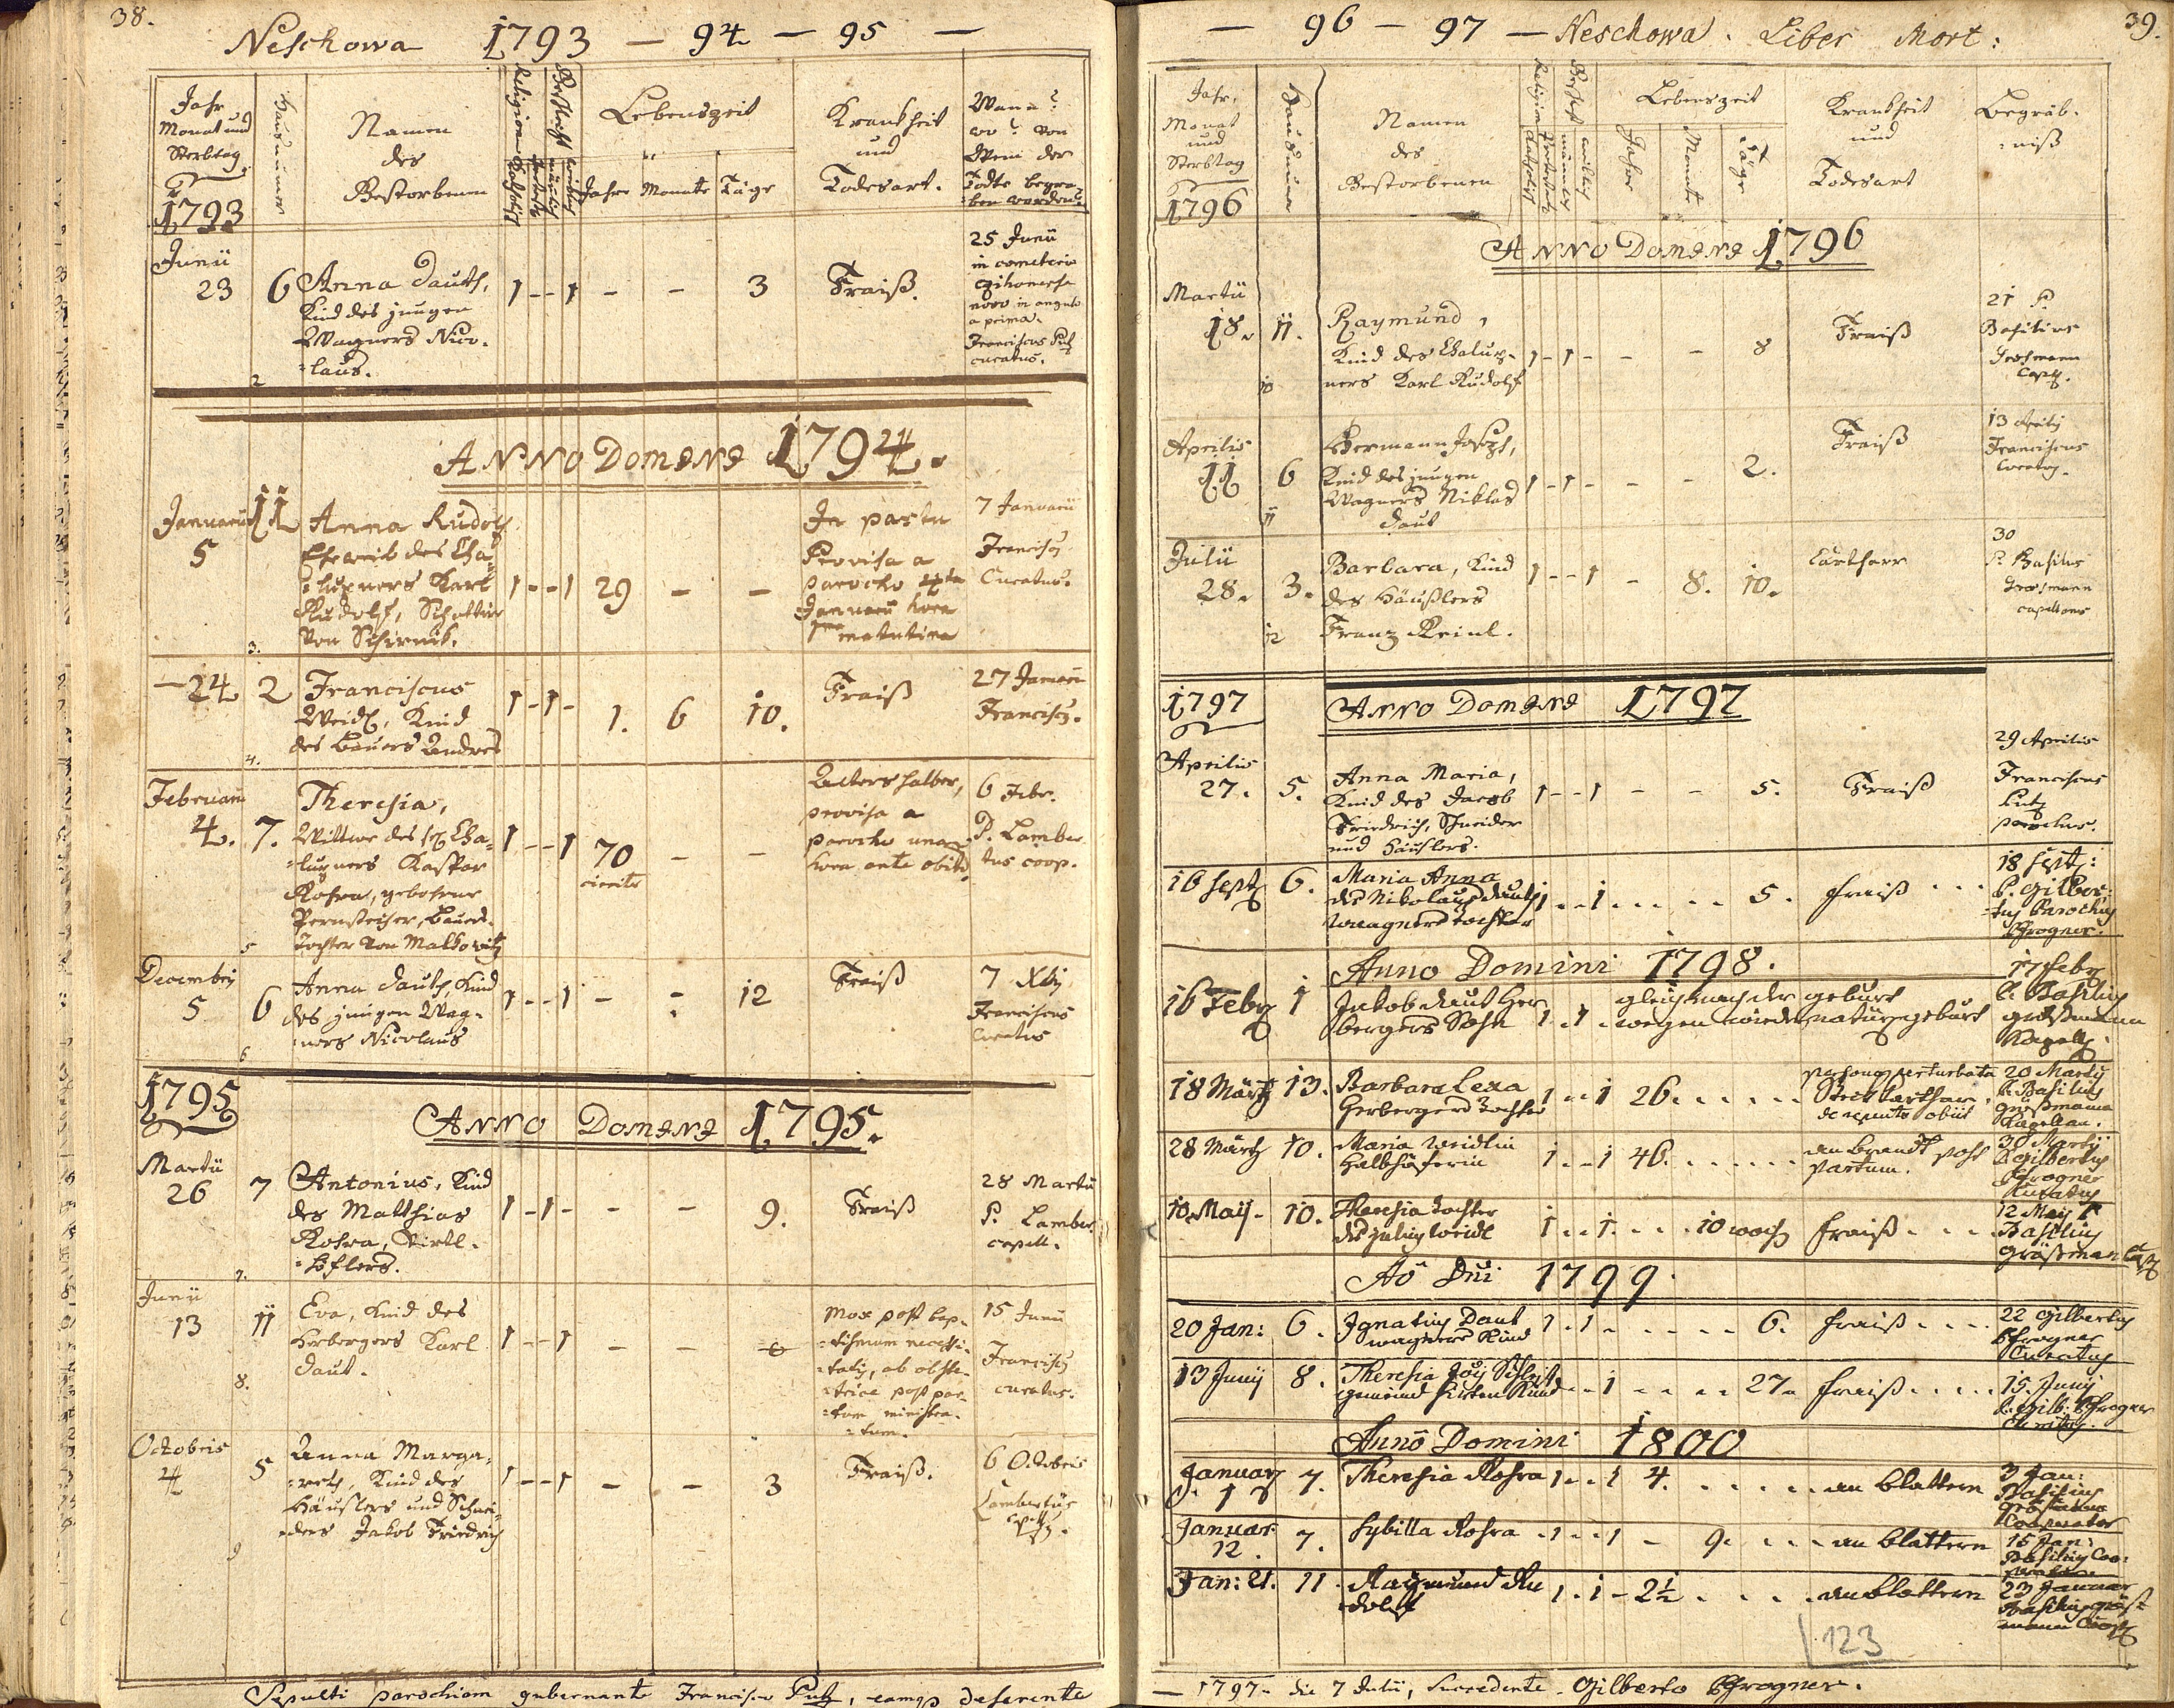 38.
Neschowa 1793 — 94 — 95 —
Jahr
Monat und
Sterbtag
1793
Hausnumer
Namen
des
Verstorbenen
Religion
Katholisch
Geschlecht
männlich
weiblich
Lebenszeit
Jahre Monate Täge
Krankheit
und
Todesart.
Wann?
wo? von
Wem der
Todte begra-
ben worden?
Junii
23 6 Anna Dauth,
Kind des jungen
Wagners Nico-
laus.
1 - - 1 - - 3 Fraiß.
25 Junii
in cemeterio
novo in angulo
a prima.
Franciscus Putz
curatus.
2
ANNO DOMINI 1794.
Januarii 5 11 Anna Rudolf
Eheweib des Cha-
lupners Karl
Rudolf,
von Schirnik.
1 - - 1 29 - -
In partu
Provisa a
parocho 4ta
Januarii hora
1ma matutina
7 Januarii
Francisc9
Curatus.
3.
— 24 2 Franciscus
Weidl, Kind
des Bauers Andres
1 - 1 - 1. 6 10. Fraiß
27 Januarii
Francisc9.
4.
Februarii
4. 7. Theresia,
Wittwe des Cha-
lupners Kaspar
Kohra, gebohrne
Bauers-
Tochter von Malkowitz
1 - - 1 70 - -
circiter
Alters halber,
provisa a
parocho una
hora ante obitū
6 Febr.
P. Lamber
tus coop.
5
Decembris
5 6 Anna Dauth, Kind
des jungen Wag-
ners Nicolaus
1 - - 1 - - 12 Fraiß
7 Xbris
Franciscus
Curatus
6
1795
ANNO DOMINI 1795.
Martii
26 7 Antonius, Kind
des Matthias
Kohra, Virtl-
höflers.
1 - 1 - - - 9. Fraiß
28 Martii
P. Lamber
capell.
7.
Junii
13 11 Eva, Kind des
Herbergers Karl
Daut.
1 - - 1 - -
Mox post bap-
tismum necessi-
tatis, ab obste-
trice post par-
tum ministra-
tum.
15 Junii
Francisc9
curatus.
8.
Octobris
4 5 Anna Marga-
reth, Kind des
Häuslers und Schnei-
ders Jakob Friedrich
1 - - 1 - - 3 Fraiß.
6 Octobris
Lambertus
Capell9.
9
Sepulti parochiam gubernante Francisco Putz, eamq deserente
— 96 — 97 — Neschowa. Liber Mort:
39.
Jahr,
Monat
und
Sterbtag
1796
Hausnumer
Namen
des
Verstorbenen
Religion
Katholisch
männlich
weiblich
Lebenszeit
Jahre
Monate
Täge
Krankheit
und
Todesart
Begräb-
niß
ANNO DOMINI 1796
Martii
18. 11. Raymund,
Kind des Chalup-
ners Karl Rudolf
1 - 1 - - - 8 Fraiß
21 P.
Basilius
Grosmann
Capell.
10
Aprilis
11 6 Hermann Joseph,
Kind des jungen
Wagners Niklas
Daut
1 - 1 - - - 2. Fraiß
13 Aprilis
Franciscus
Curatus.
11
Julii
28. 3. Barbara, Kind
des Häußlers
Franz Reinl.
1 - - 1 - 8. 10. Cartharr
30
P. Basilius
Grosmann
capellanus
12
1797
ANNO DOMINI 1797
Aprilis
27. 5. Anna Maria,
Kind des Jacob
Friedrich, Schneider
und Häuslers.
1 - - 1 - - 5. Fraiß
29 Aprilis
Franciscus
Putz
parochus.
16 Sept 6. Maria Anna
des Nikolaus Dauth
wagners Tochter
1 . . 1 . . . . . 5. fraiß . . .
18 Sept:
P. Gilber-
tus Parochus
Pfrogner.
Anno Domini 1798.
16 Febr 1 Jakob Daut Her
bergers Sohn
1 . 1 .
gleich nach der geburt
17 Febr
P. Basilius
großmann
Kapell.
18 Märtz 13. Barbara Lexa
Herbergers Tochter
1 . . 1 26. . . . . .
perturbata
Steckkathar
de repente obiit
20 Martii
P. Basilius
großmann
Kapellan.
28 Märtz 10. Maria Weidlin
Halbhöferin
1 . . 1 46. . . . . .
am brandt post
partum.
30 Martii
P. Gilbertus
Pfrogner
Kuratus
10. Maij - 10. Theresia Tochter
des Weidl
1 . . 1 . . . 10 woch fraiß . . .
12 Maij P
Basilius
großman
Ao Dni 1799.
20 Jan: 6. Ignatius Daut
wagners Kind
1 . 1 . . . . . 6. fraiß . . .
22 Gilbertus
Pfrogner
Curatus
13 Junij 8. Theresia
gemeind hirten Kind
. . 1 . . . . 27. fraiß . . . .
15. Junij
P. Gilb: Pfrogner
Curatus.
Anno Domini 1800
Januar
1 7. Theresia Kohra 1 . . 1 4. . . . . . an blattern
3 Jan:
Basilius
großmann
Cooperator
Januar
12. 7. Sybilla Kohra . 1 . . 1 - 9. . . . an blattern
15 Jan:
Basilius Coo-
perator
Jan: 21. 11. Raymund Ru
dolf
1 . 1 - 2½ . . . . an blattern
23 Januar
Basilius groß
mann Coop
123
— 1797. die 7 Julii, succedente Gilberto Pfrogner.